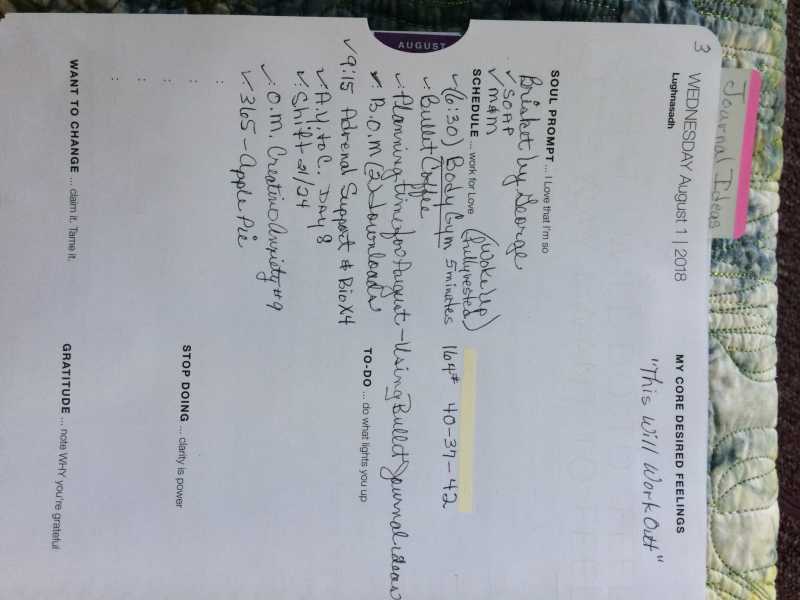 Journal Ideas
3 WEDNESDAY August 1 | 2018
Lughnasadh
MY CORE DESIRED FEELINGS
"This Will Work Out"
AUGUST
SOUL PROMPT ... I Love that I'm so
Brisket by George
✓ SOAP
✓ M&M
SCHEDULE ... work for Love
(Woke Up)
(fully rested)
✓ (6:30) Body Gym 5 minutes 164# 40-37-42
✓ Bullet Coffee
✓ Planning time for August - Using Bullet Journal ideas
✓ B.O.M (2) Downloads
TO-DO ... do what lights you up
✓ 9:15 Adrenal Support & BioX4
✓ A.Y. to C. Day 8
✓ Shift 21/24
✓ O.M. Creative Anxiety #9
✓ 365 - Apple Pie
STOP DOING ... clarity is power
WANT TO CHANGE ... claim it. Tame it.
GRATITUDE ... note WHY you're grateful